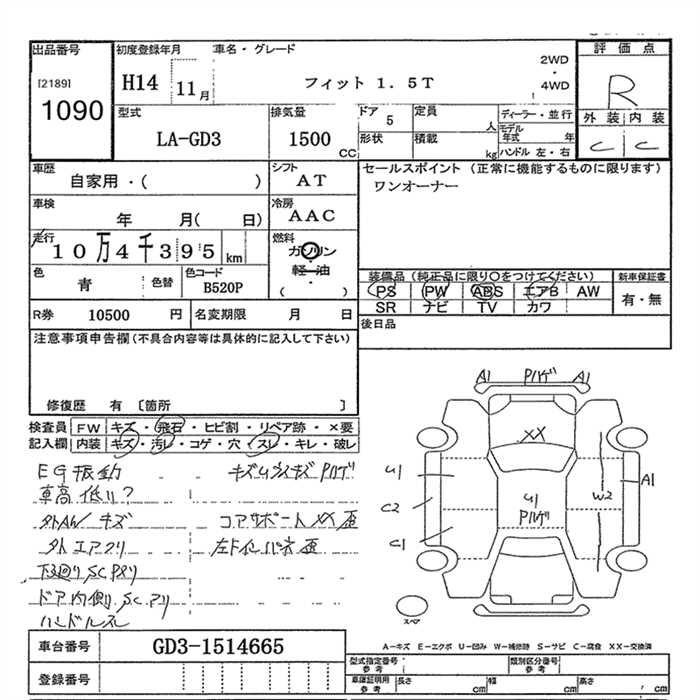 出品番号
[2189]
1090
初度登録年月
H14
11月
車名・グレード
フィット 1．5T
2WD
・
4WD
評価点
R
外装 内装
C C
型式
LA-GD3
排気量
1500
CC
ドア
5
定員
人
形状
積載
kg
ディーラー・並行
モデル年式
年
ハンドル 左・右
車歴
自家用・( )
シフト
AT
セールスポイント（正常に機能するものに限ります）
ワンオーナー
車検
年 月( 日)
冷房
AAC
走行
10万4千395
km
燃料
ガソリン
・
軽油
( )
色
青
色替
色コード
B520P
装備品（純正品に限り○をつけてください）
PS PW ABS エアB AW
SR ナビ TV カワ
新車保証書
有・無
R券
10500
円
名変期限
月 日
後日品
注意事項申告欄（不具合内容等は具体的に記入して下さい）
修復歴 有 〔箇所 〕
検査員
記入欄
FW キズ・飛石・ヒビ割・リペア跡・×要
内装 キズ・汚レ・コゲ・穴・スレ・キレ・破レ
EG振動
車高低い?
外AW キズ
外エアクリ
下廻りSC
ドア内側SCアリ
ハンドルスレ
コアサポートXX歪
A1 Pハゲ A1
XX
U1
C2
C1
U1
Pハゲ
W2
A1
スペア
A－キズ E－エクボ U－凹み W－補修跡 S－サビ C－腐食 XX－交換済
車台番号
GD3-1514665
登録番号
型式指定番号
参考
類別区分番号
参考
車庫証明用
参考
長さ
cm
幅
cm
高さ
cm